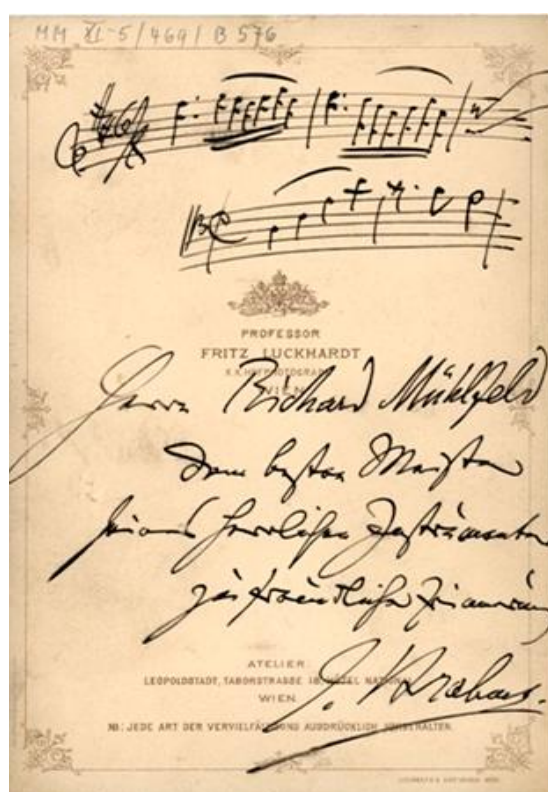 MM XI-5/469/ B 576
PROFESSOR
FRITZ LUCKHARDT
K.K. HOFPHOTOGRAPH
WIEN
Herrn Richard Mühlfeld
dem besten Meister
seines herrlichen Instrumentes
zu freundlicher Erinnerung
J. Brahms.
ATELIER:
LEOPOLDSTADT, TABORSTRASSE 18, HÔTEL NATIONAL
WIEN.
NB: JEDE ART DER VERVIELFÄLTIGUNG AUSDRÜCKLICH VORBEHALTEN.